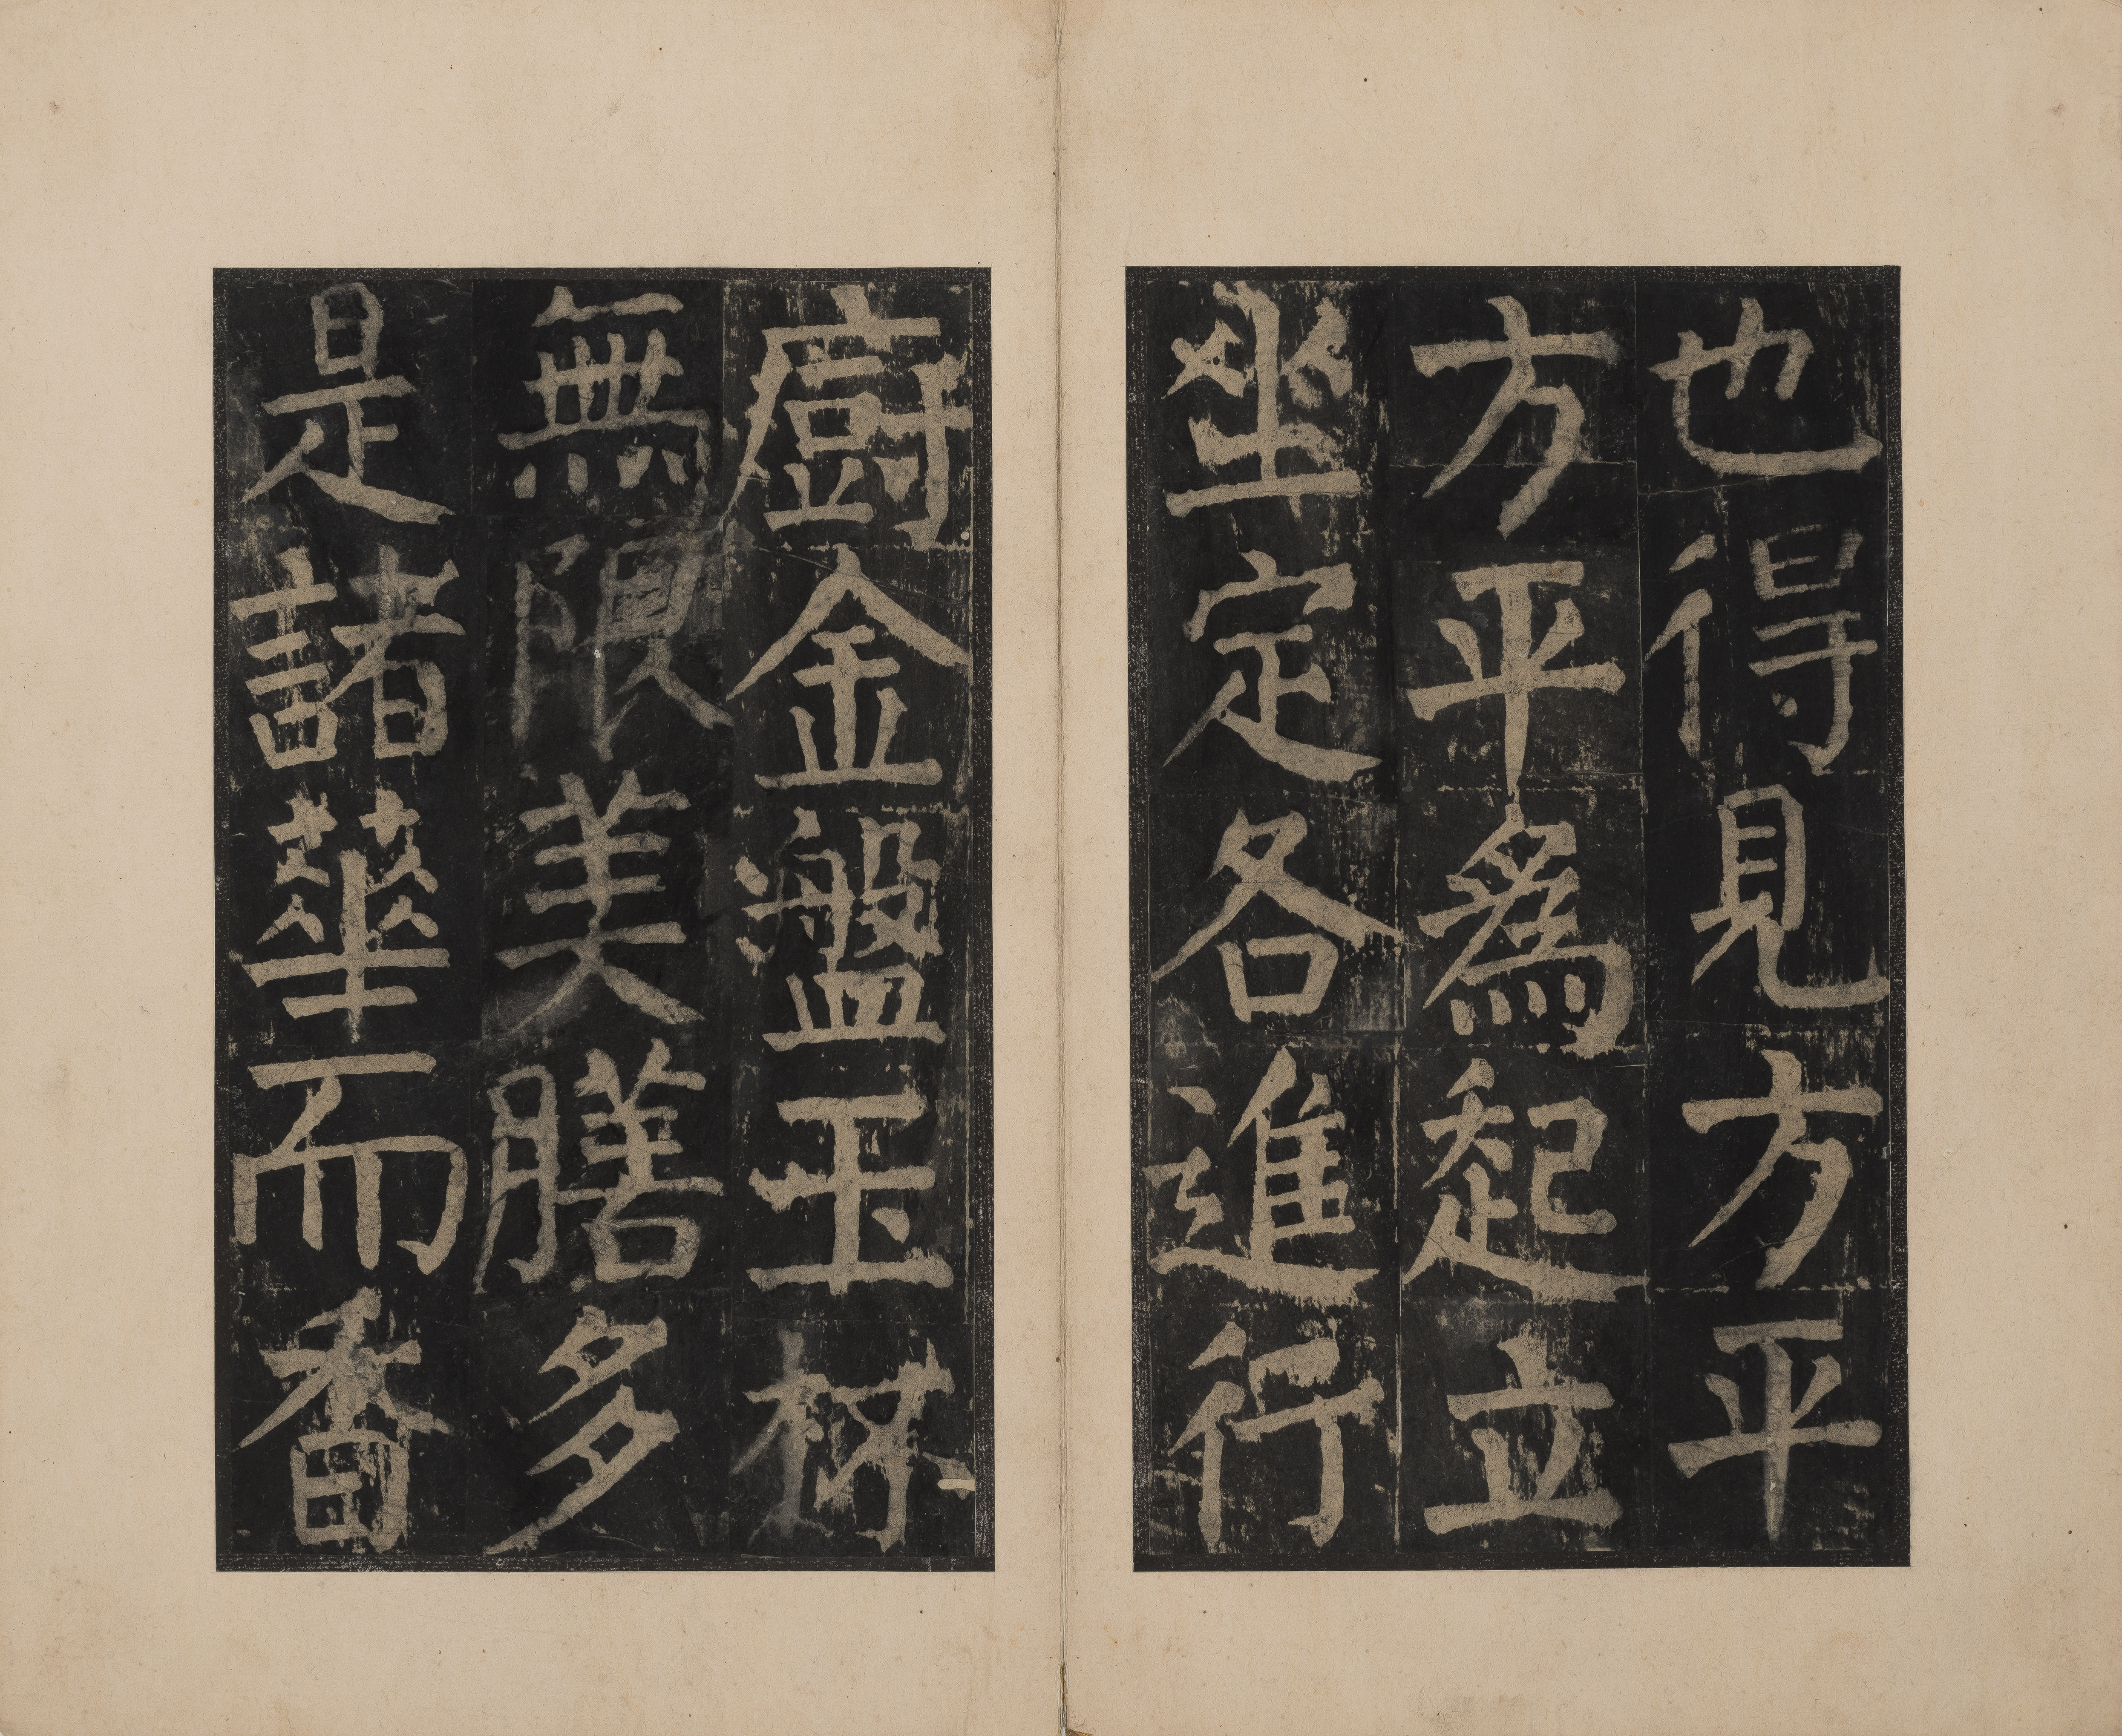 也得見方平
方平爲起立
坐定各進行
廚金盤玉杯
無限美膳多
是諸華而香